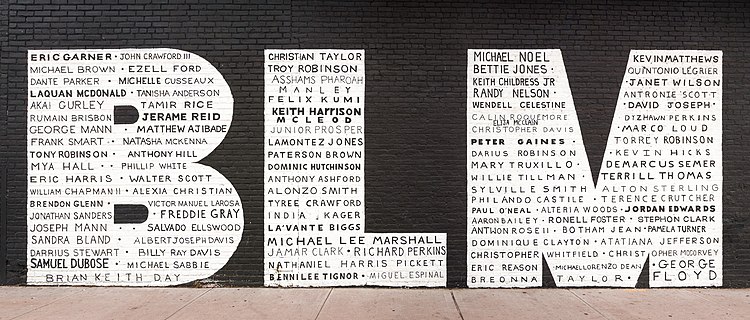 ERIC GARNER · JOHN CRAWFORD III
MICHAEL BROWN · EZELL FORD
DANTE PARKER · MICHELLE CUSSEAUX
LAQUAN MCDONALD · TANISHA ANDERSON
AKAI GURLEY · TAMIR RICE
RUMAIN BRISBON · JERAME REID
GEORGE MANN · MATTHEW AJIBADE
FRANK SMART · NATASHA MCKENNA
TONY ROBINSON · ANTHONY HILL
MYA HALL · PHILLIP WHITE
ERIC HARRIS · WALTER SCOTT
WILLIAM CHAPMAN II · ALEXIA CHRISTIAN
BRENDON GLENN · VICTOR MANUEL LAROSA
JONATHAN SANDERS · FREDDIE GRAY
JOSEPH MANN · SALVADO ELLSWOOD
SANDRA BLAND · ALBERT JOSEPH DAVIS
DARRIUS STEWART · BILLY RAY DAVIS
SAMUEL DUBOSE · MICHAEL SABBIE
BRIAN KEITH DAY
CHRISTIAN TAYLOR
TROY ROBINSON
ASSHAMS PHAROAH
MANLEY
FELIX KUMI
KEITH HARRISON
MCLEOD
JUNIOR PROSPER
LAMONTEZ JONES
PATERSON BROWN
DOMINIC HUTCHINSON
ANTHONY ASHFORD
ALONZO SMITH
TYREE CRAWFORD
INDIA KAGER
LA'VANTE BIGGS
MICHAEL LEE MARSHALL
JAMAR CLARK · RICHARD PERKINS
NATHANIEL HARRIS PICKETT
BENNI LEE TIGNOR · MIGUEL ESPINAL
MICHAEL NOEL
BETTIE JONES
KEITH CHILDRESS JR
RANDY NELSON
WENDELL CELESTINE
CALIN ROQUEMORE
ELIJA MCCLAIN
CHRISTOPHER DAVIS
PETER GAINES
DARIUS ROBINSON
MARY TRUXILLO
WILLIE TILLMAN
SYLVILLE SMITH
KEVIN MATTHEWS
QUINTONIO LEGRIER
JANET WILSON
ANTRONIE SCOTT
DAVID JOSEPH
DYZHAWN PERKINS
MARCO LOUD
TORREY ROBINSON
KEVIN HICKS
DEMARCUS SEMER
TERRILL THOMAS
ALTON STERLING
PHILANDO CASTILE · TERENCE CRUTCHER
PAUL O'NEAL · ALTERIA WOODS · JORDAN EDWARDS
AARON BAILEY · RONELL FOSTER · STEPHON CLARK
ANTWON ROSE II · BOTHAM JEAN · PAMELA TURNER
DOMINIQUE CLAYTON · ATATIANA JEFFERSON
CHRISTOPHER WHITFIELD · CHRISTOPHER MCCORVEY
ERIC REASON · MICHAEL LORENZO DEAN · GEORGE
BREONNA TAYLOR · FLOYD